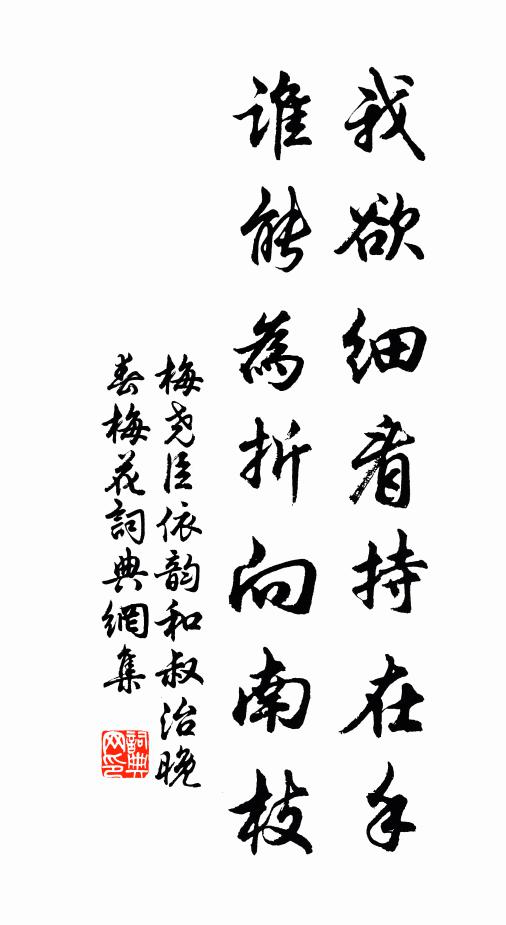 我欲细看持在手
谁能為折向南枝
梅尧臣依韵和叔治晚
春梅花詞典網集
詞典网印